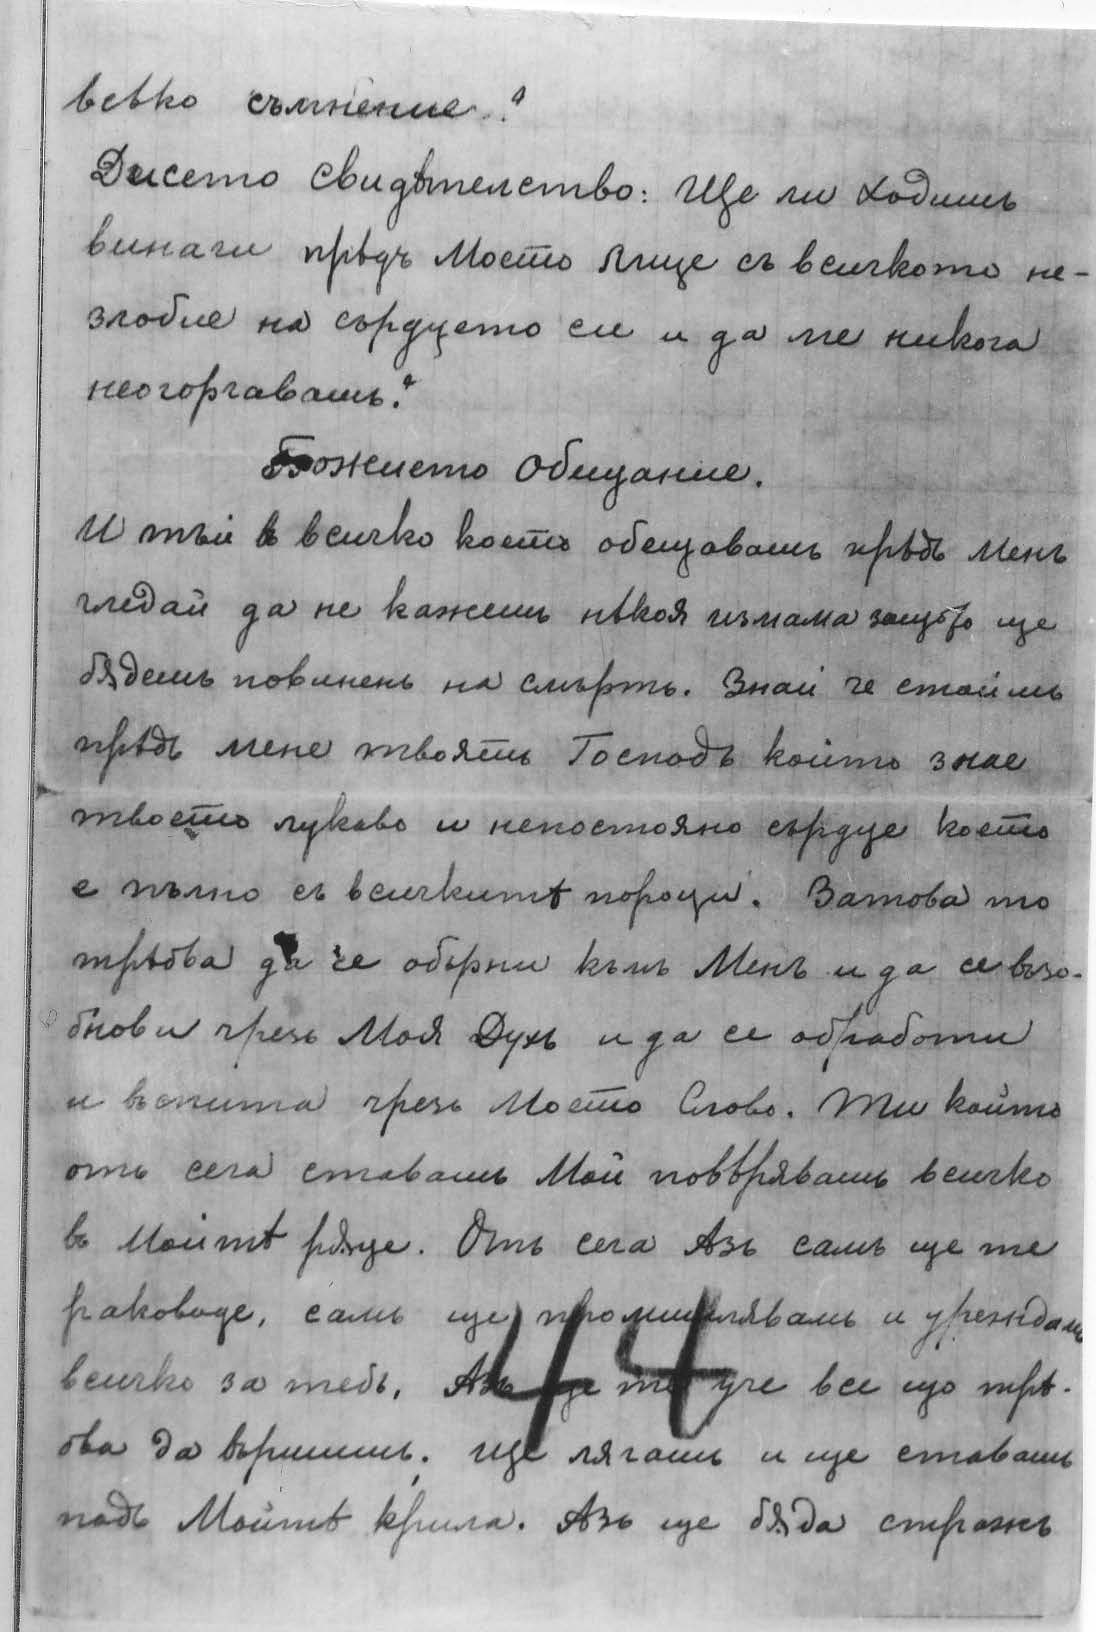 всѣко съмнение?
Дисето свидѣтелство: Ще ли ходишъ
винаги прѣдъ Моето Лице съ всичкото не-
злобие на сърдцето си и да ме никога
неогорчавашъ?
Божието Обещание.
И тъй в всичко което обещавашъ прѣдъ Менъ
гледай да не кажешъ нѣкоя измама защото ще
бѫдешъ повиненъ на смърть. Знай че стоишъ
прѣдъ мене твоятъ Господъ който знае
твоето лукаво и непостояно сърдце което
е пълно съ всичкитѣ пороци. Затова то
трѣбва да се обърни къмъ Менъ и да се възо-
бнови чрезъ Моя Духъ и да се обработи
и въспита чрезъ Моето Слово. Ти който
отъ сега ставашъ Мой повѣрявашъ всичко
въ Моитѣ рѫце. Отъ сега Азъ самъ ще те
раководе, самъ ще промишлявамъ и уреждамъ
всичко за тебъ. Азъ ще те уче все що трѣ-
бва да вършишъ. Ще лягашъ и ще ставашъ
подъ Моитѣ крила. Азъ ще бѫда стражъ
44